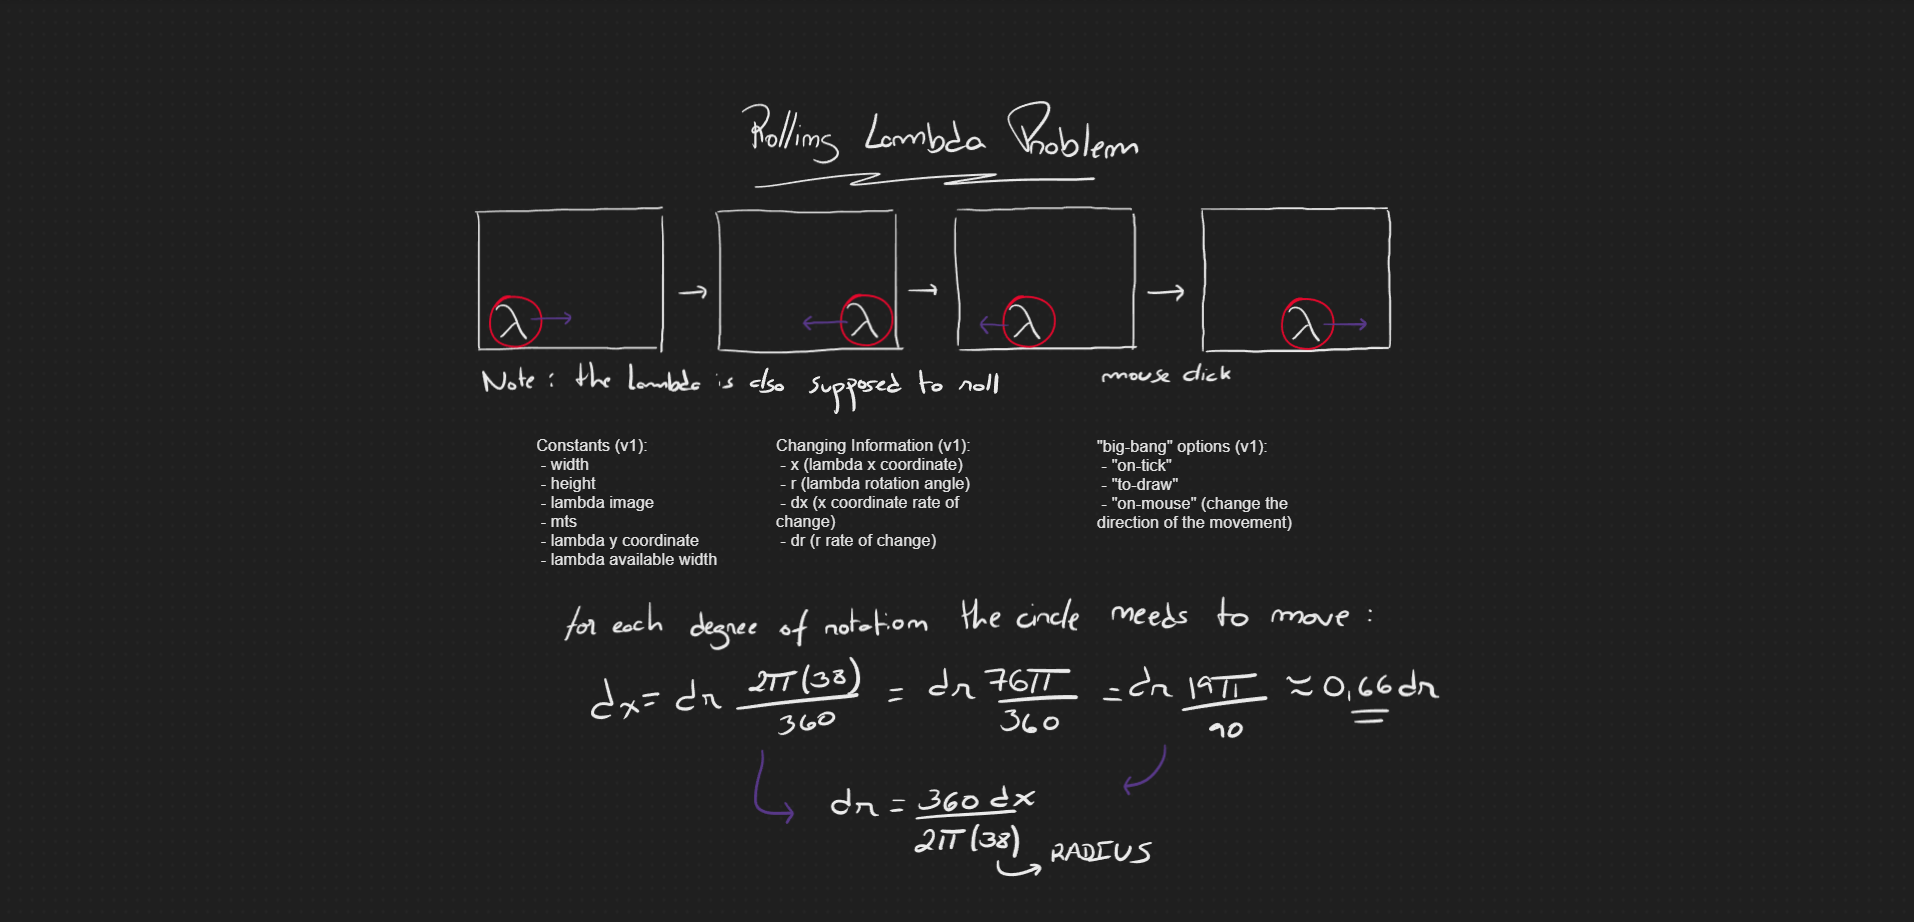 Rolling Lambda Problem
λ
λ
λ
λ
Note: the lambda is also supposed to roll
mouse click
Constants (v1):
- width
- height
- lambda image
- mts
- lambda y coordinate
- lambda available width
Changing Information (v1):
- x (lambda x coordinate)
- r (lambda rotation angle)
- dx (x coordinate rate of
change)
- dr (r rate of change)
"big-bang" options (v1):
- "on-tick"
- "to-draw"
- "on-mouse" (change the
direction of the movement)
for each degree of rotation the circle needs to move:
dx = dr 2π(38)/360 = dr 76π/360 = dr 19π/90 ≈ 0,66 dr
dr = 360 dx/2π(38)
RADIUS